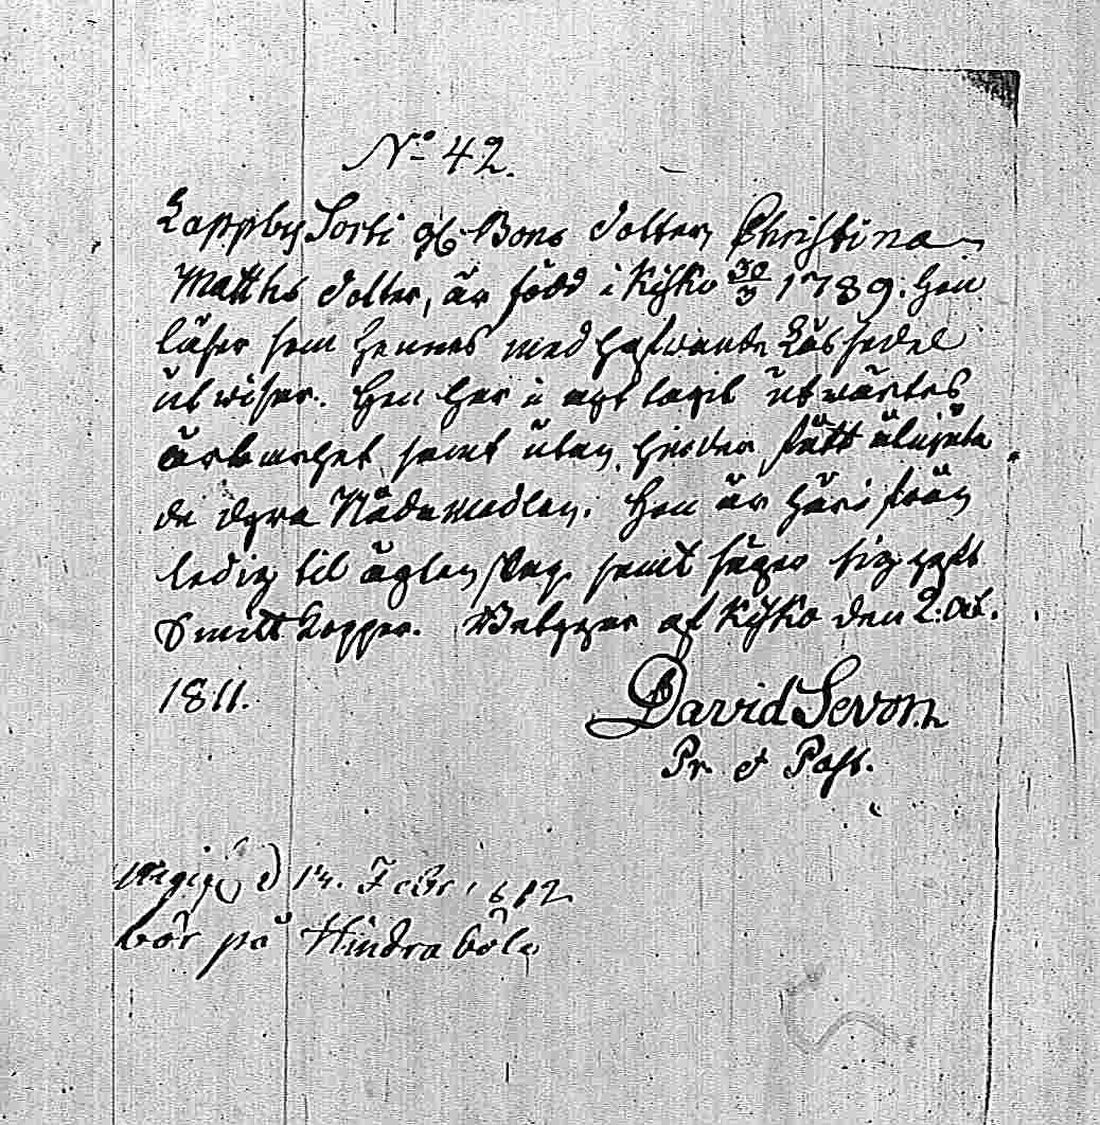 No 42.
Lappby Sorti gl Bons dotter, Christina
Matths dotter, är född i Kisko 30/3 1789. Hon
läser som hennes medhafwande Läs sedel
utwisar. Hon har i agt tagit utwärtes
ärbarhet, samt utan hinder fått åtnjuta
de dyra Nådemedlen. Hon är härifrån
ledig til ägtenskap samt säger sig haft
Smittkoppor. Betyger af Kisko den 2. Oct.
1811.
David Sevon
Pr. et Past.
d 14. Febr. 1812
bor på Hindraböle